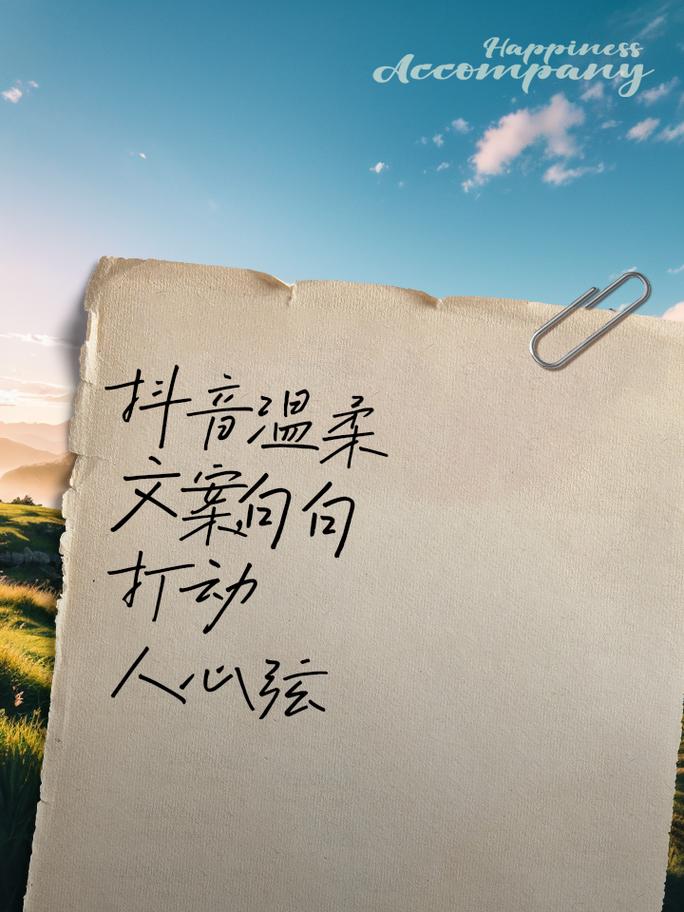 Happiness
Accompany
抖音温柔
文案句句
打动
人心弦